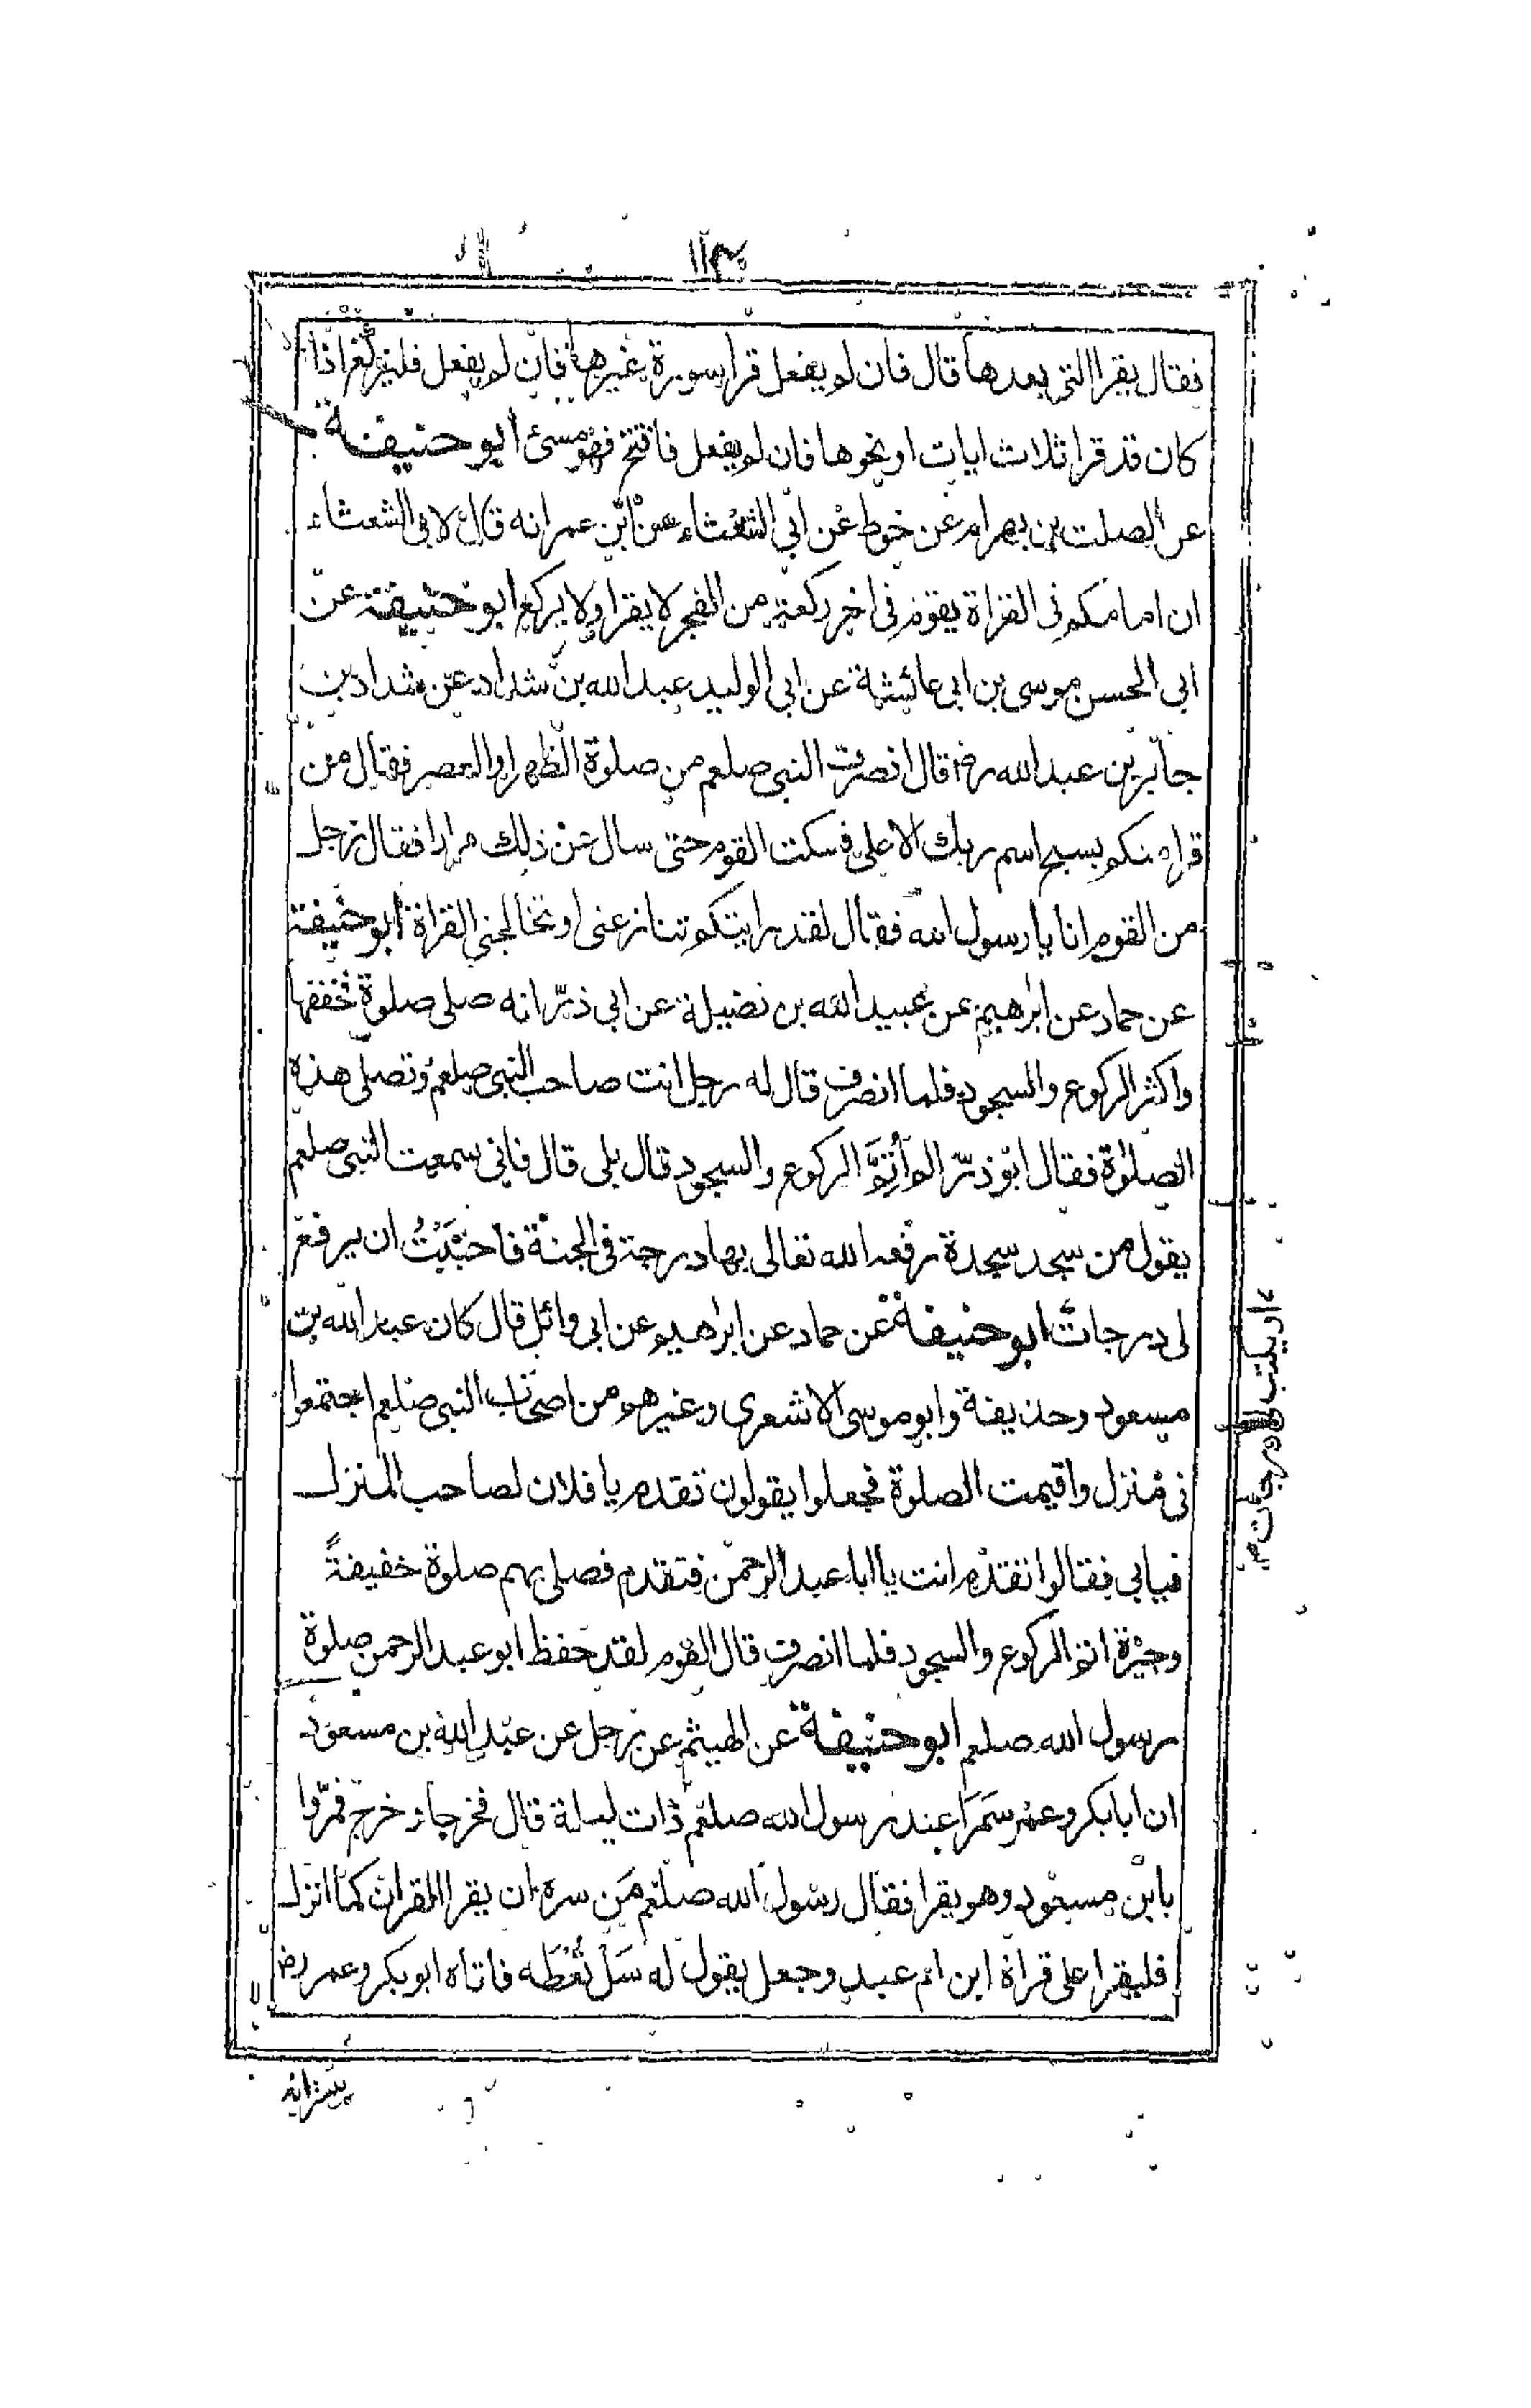 ١١٣
فقال يقرا التى بعدها قال فان لم يفعل قرا سورة غيرها فان لم يفعل فليركع اذا
كان قد قرا ثلاث ايات او نحوها فان لم يفعل فافتتح فهو مسئ ابو حنيفة
عن الصلت بن بهرام عن حوط عن ابى الشعثاء عن ابن عمر انه قال لابى الشعثاء
ان امامكم فى القراة يقوم فى اخر ركعة من الفجر لا يقرا ولا يركع ابو حنيفة عن
ابى الحسن موسى بن ابى عائشة عن ابى الوليد عبد الله بن شداد عن شداد بن
جابر بن عبد الله رضـ قال انصرف النبى صلعم من صلوة الظهر او العصر فقال من
قرا منكم بسبح اسم ربك الاعلى فسكت القوم حتى سال عن ذلك مرارا فقال رجل
من القوم انا يا رسول الله فقال لقد رايتكم تنازعنى او تخالجنى القراة ابو حنيفة
عن حماد عن ابرهيم عن عبيد الله بن نضيلة عن ابى ذر انه صلى صلوة خففها
واكثر الركوع والسجود فلما انصرف قال له رجل انت صاحب النبى صلعم وتصلى هذه
الصلوة فقال ابو ذر الم أُتِمَّ الركوع والسجود قال بلى قال فانى سمعت النبى صلعم
يقول من سجد سجدة رفعه الله تعالى بها درجة فى الجنة فاحببت ان يرفع
لى درجات ابو حنيفة عن حماد عن ابرهيم عن ابى وائل قال كان عبد الله بن
مسعود وحذيفة وابو موسى الاشعرى وغيرهم من اصحاب النبى صلعم اجتمعوا
فى منزل واقيمت الصلوة فجعلوا يقولون تقدم يا فلان لصاحب المنزل
فيابى فقالوا تقدم انت يا ابا عبد الرحمن فتقدم فصلى بهم صلوة خفيفةً
وجيزة اتم الركوع والسجود فلما انصرف قال القوم لقد حفظ ابو عبد الرحمن صلوة
رسول الله صلعم ابو حنيفة عن الهيثم عن رجل عن عبد الله بن مسعود
ان ابا بكر وعمر سَمَرَا عند رسول الله صلعم ذات ليلة قال فخرجا وخرج فمرّوا
بابن مسعود وهو يقرا فقال رسول الله صلعم من سره ان يقرا القران كما انزل
فليقرا على قراة ابن ام عبد وجعل يقول له سَلْ تُعْطَه فاتاه ابو بكر وعمر رضـ
او يكتب لى درجات